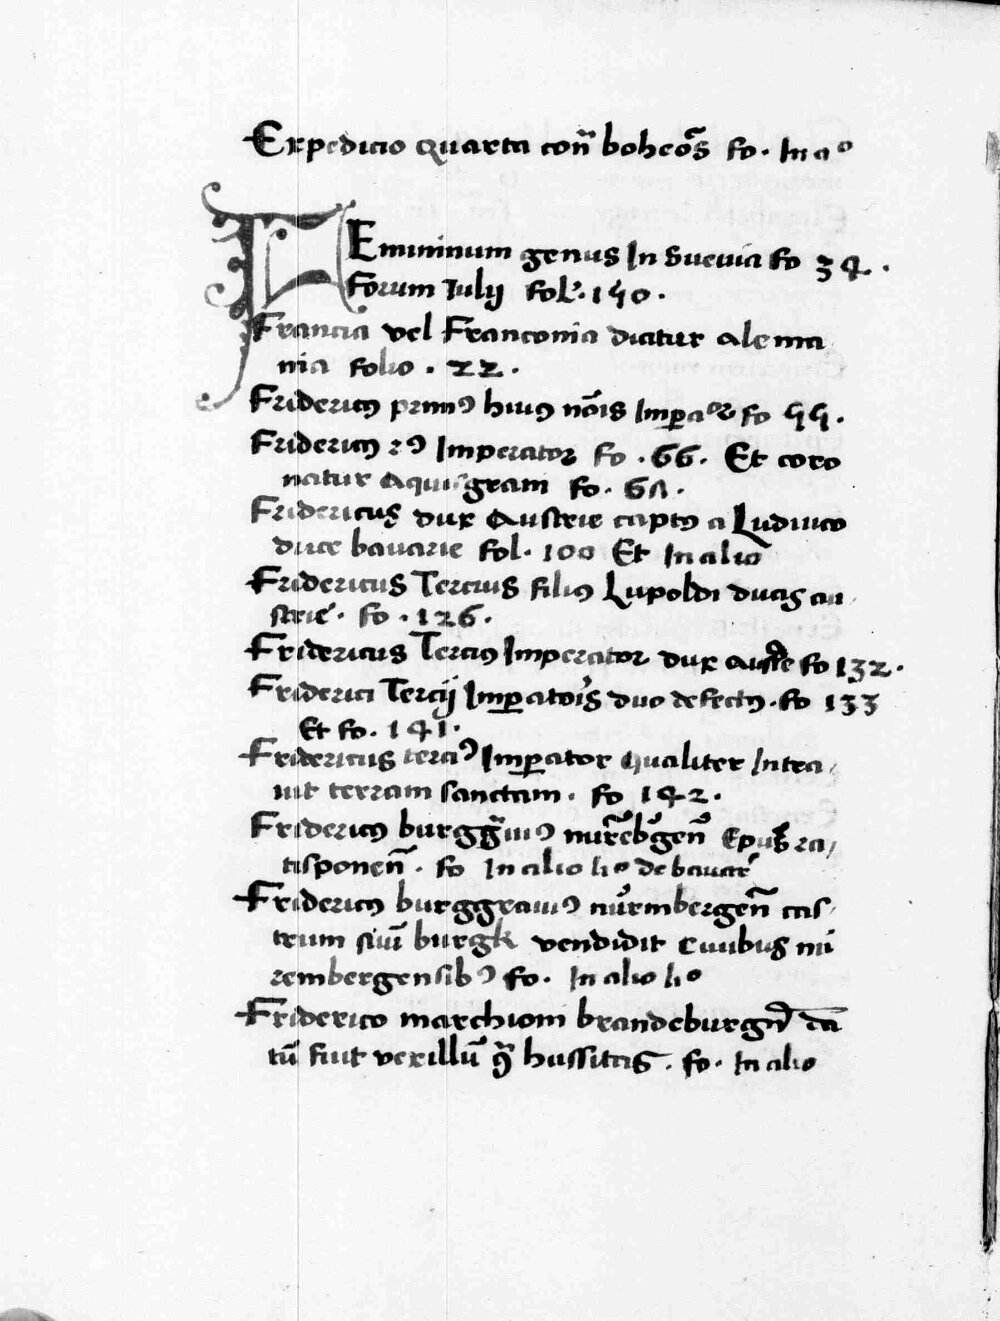 Expedicio quarta con̄ boheōs fo. In a°
FEmininum genus In Suevia fo 34.
Forum Iulij fol. 150.
Francia vel Franconia dicitur alema
nia folio . 22.
Fridericꝰ primꝰ huiꝰ nōis Imꝑaᵒʳ fo 55.
Fridericꝰ 2ꝰ Imperator fo .66. Et coro
natur Aquisgrani fo. 6Λ.
Fridericus dux Austrie captꝰ a Ludvico
duce bavarie fol. 100 Et In alio
Fridericus Tercius filiꝰ Lupoldi ducis au
strie. fo .126.
Fridericus Terciꝰ Imperator dux austͥe fo 132.
Friderici Tercij Imꝑatoīs duo defectꝰ. fo 133
Et fo. 141.
Fridericus terciꝰ Imꝑator qualiter Intra,
uit terram sanctam. fo 142.
Fridericꝰ burgg̃uiꝰ nur̄eb̄gen̄ Epūs ra,
tisponen̄. fo In alio liᵒ de bavar̄
Fridericꝰ burggrauiꝰ nūrmbergen̄ cas,
trum siuē burgk vendidit Ciuibus nu
rembergensibꝰ fo. In alio liᵒ
Friderico marchioni brandeburgn̄ dā
tū fuit vexillū 9ͣ hussitas. fo. In alio